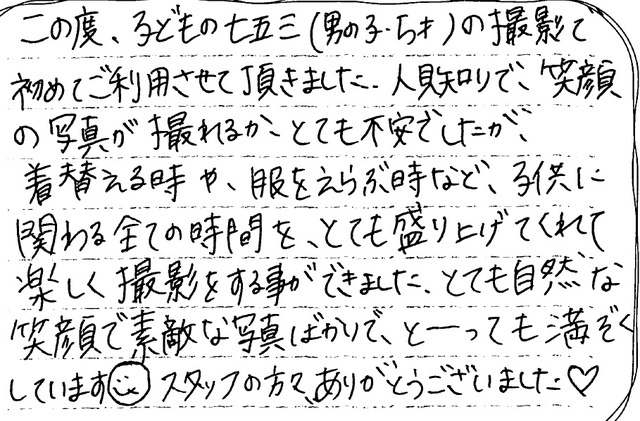 この度、子どもの七五三(男の子・5才)の撮影で
初めてご利用させて頂きました。人見知りで、笑顔
の写真が撮れるか、とても不安でしたが、
着替える時や、服をえらぶ時など、子供に
関わる全ての時間を、とても盛り上げてくれて
楽しく撮影をする事ができました。とても自然な
笑顔で素敵な写真ばかりで、と―っても満ぞく
しています スタッフの方々、ありがとうございました♡